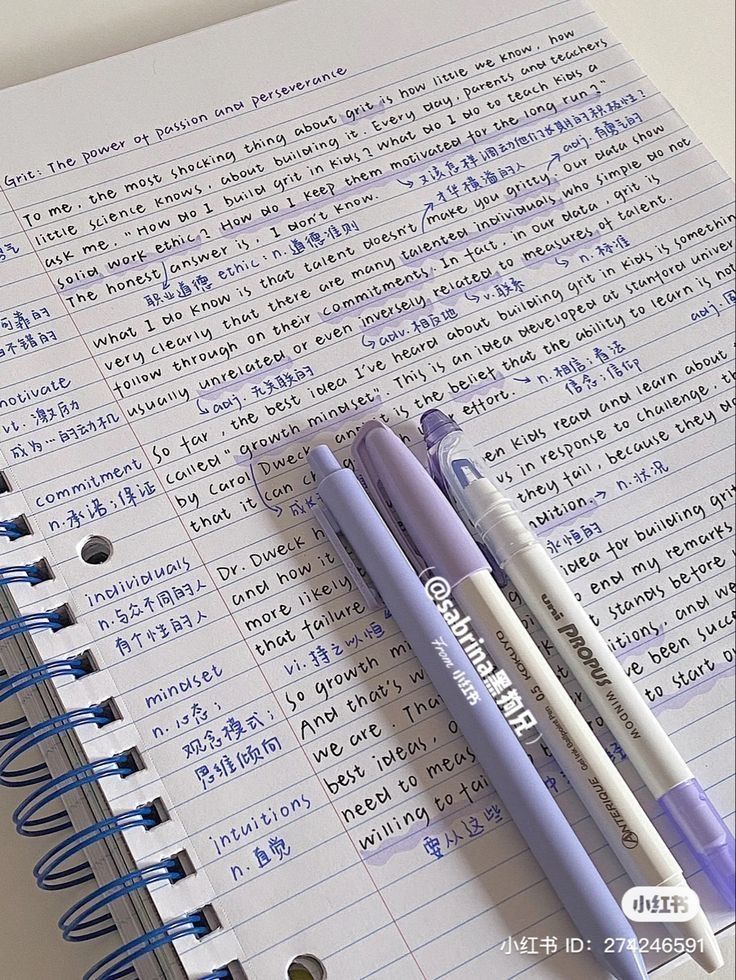 Grit: The power of passion and perseverance
To me, the most shocking thing about grit is how little we know, how
little science knows, about building it. Every day, parents and teachers
ask me, "How do I build grit in kids? What do I do to teach kids a
solid work ethic? How do I keep them motivated for the long run?"
又该怎样调动他们长期的积极性?
The honest answer is, I don't know.
才华横溢的人
adj. 有勇气的
职业道德 ethic: n. 道德准则
What I do know is that talent doesn't make you gritty. Our data show
very clearly that there are many talented individuals who simple do not
follow through on their commitments. In fact, in our data, grit is
usually unrelated or even inversely related to measures of talent.
adj. 无关联的
adv. 相反地
v. 联系
n. 标准
So far, the best idea I've heard about building grit in kids is somethin
called "growth mindset". This is an idea developed at stanford univer
by Carol Dweck, and it is the belief that the ability to learn is not
adj.
that it can ch
effort.
n. 相信;看法
信念;信仰
成长
Dr. Dweck h
en kids read and learn about
and how it
in response to challenge, th
more likely
they fail, because they do
that failure
ndition.
n. 状况
vi. 持之以恒
永恒的
So growth mi
idea for building grit
And that's w
o end my remarks
we are. Tha
t stands before u
best ideas, o
itions, and we
need to meas
ve been succe
willing to fai
to start o
要从这些
可靠的
不错的
motivate
vt. 激励
成为…的动机
commitment
n. 承诺;保证
individuals
n. 与众不同的人
有个性的人
mindset
n. 心态;
观念模式;
思维倾向
intuitions
n. 直觉
@sabrina黑狗兄
From 小红书
uni PROPUS WINDOW
KOKUYO
Gel Ink Ballpoint Pen 0.5
ANTERIQUE
小红书
小红书 ID: 274246591